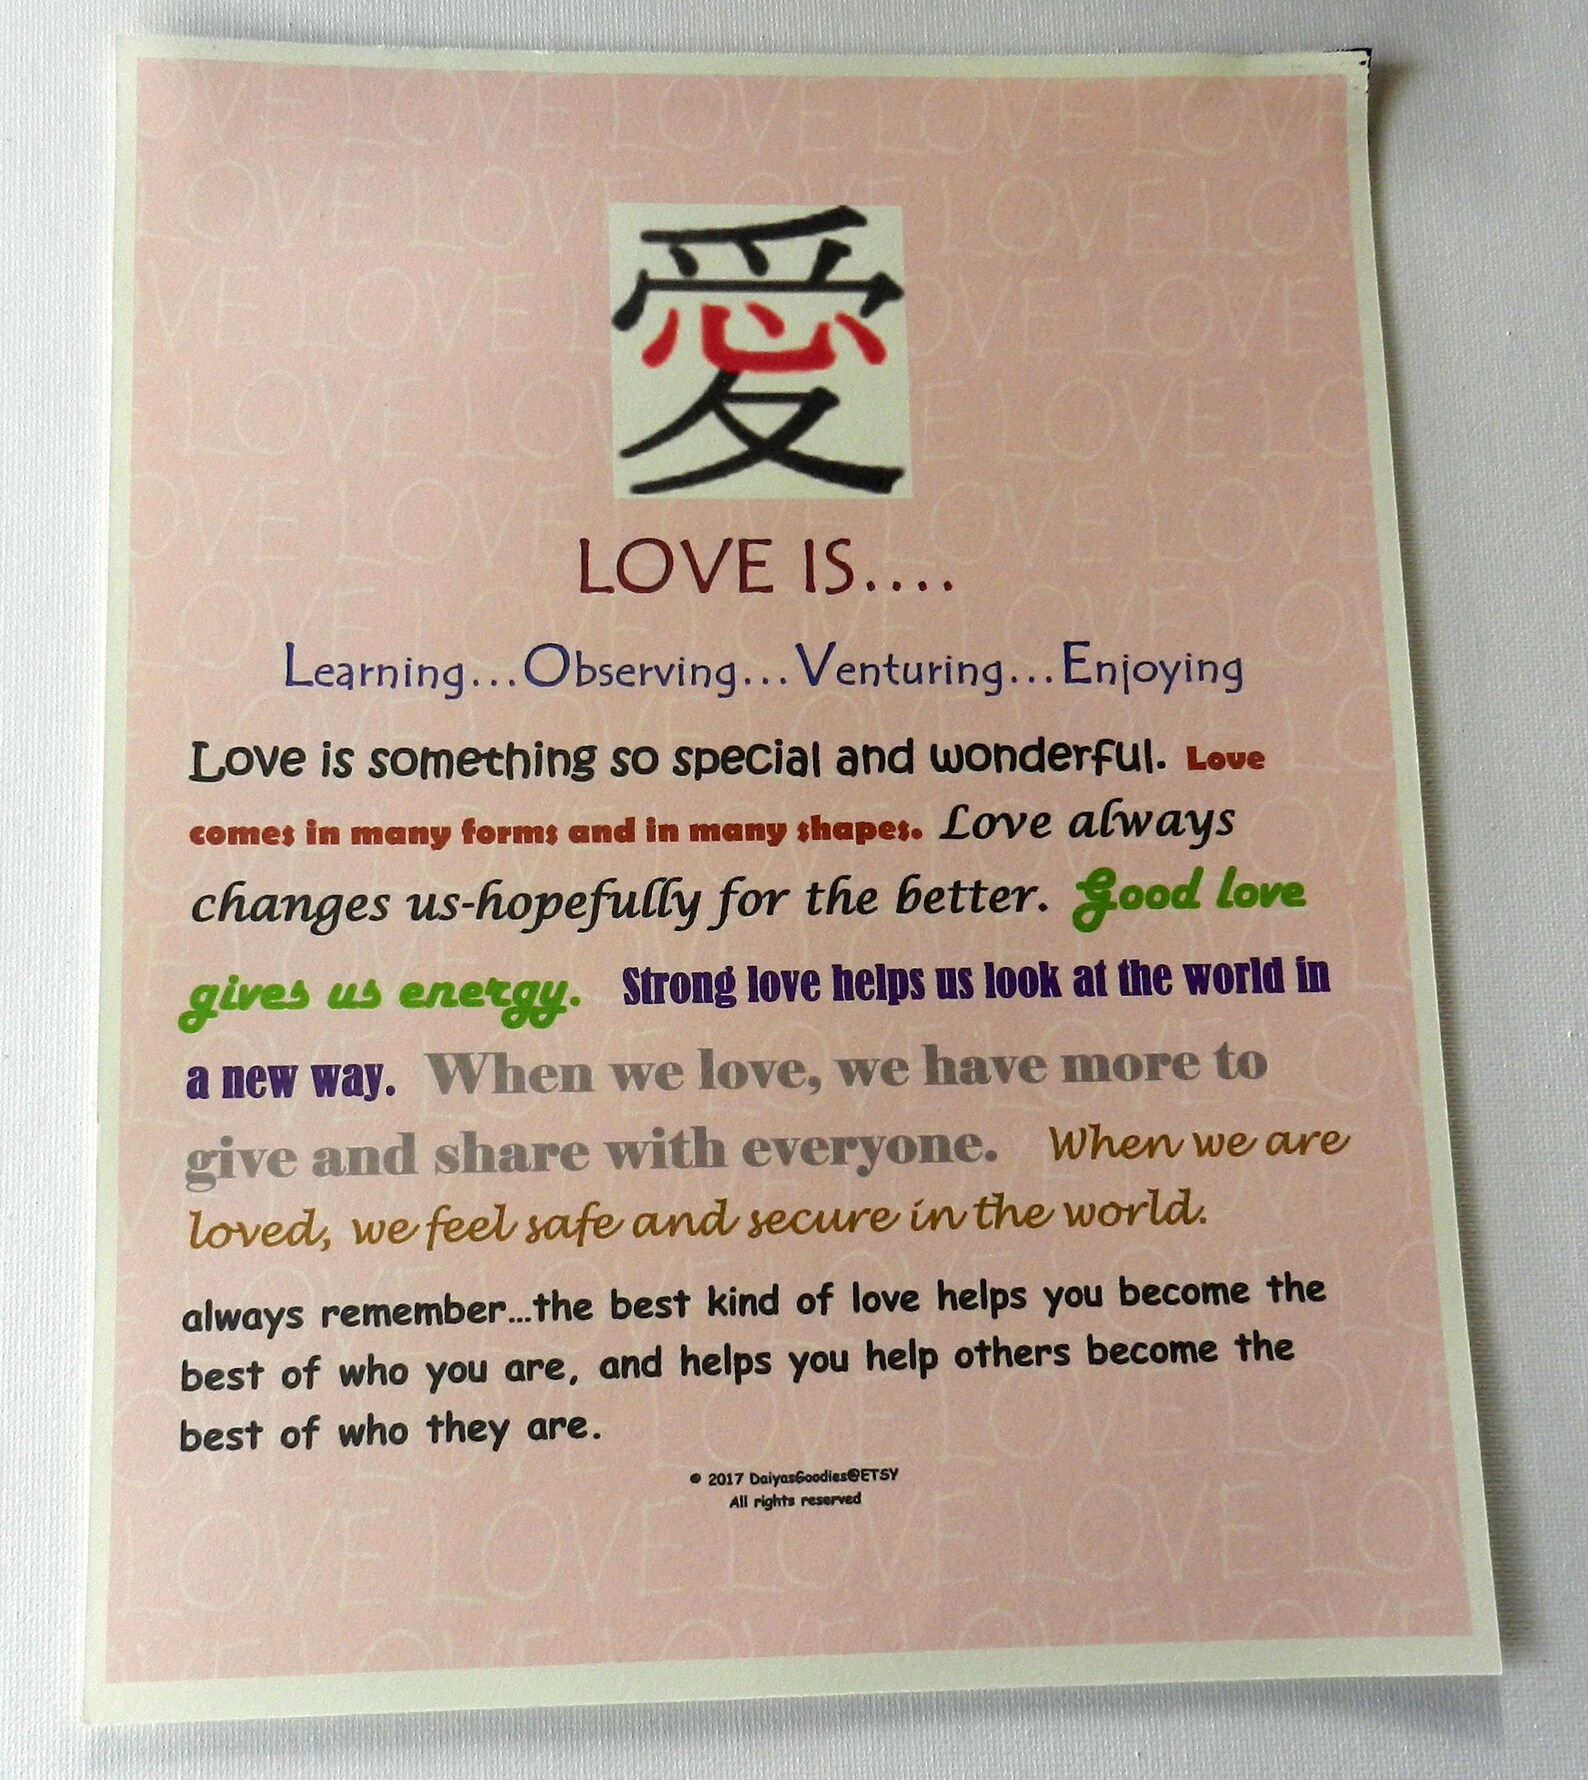 愛
LOVE IS....
Learning...Observing...Venturing...Enjoying
Love is something so special and wonderful. Love
comes in many forms and in many shapes. Love always
changes us-hopefully for the better. Good love
gives us energy. Strong love helps us look at the world in
a new way. When we love, we have more to
give and share with everyone. When we are
loved, we feel safe and secure in the world.
always remember...the best kind of love helps you become the
best of who you are, and helps you help others become the
best of who they are.
© 2017 DaiyasGoodies@ETSY
All rights reserved